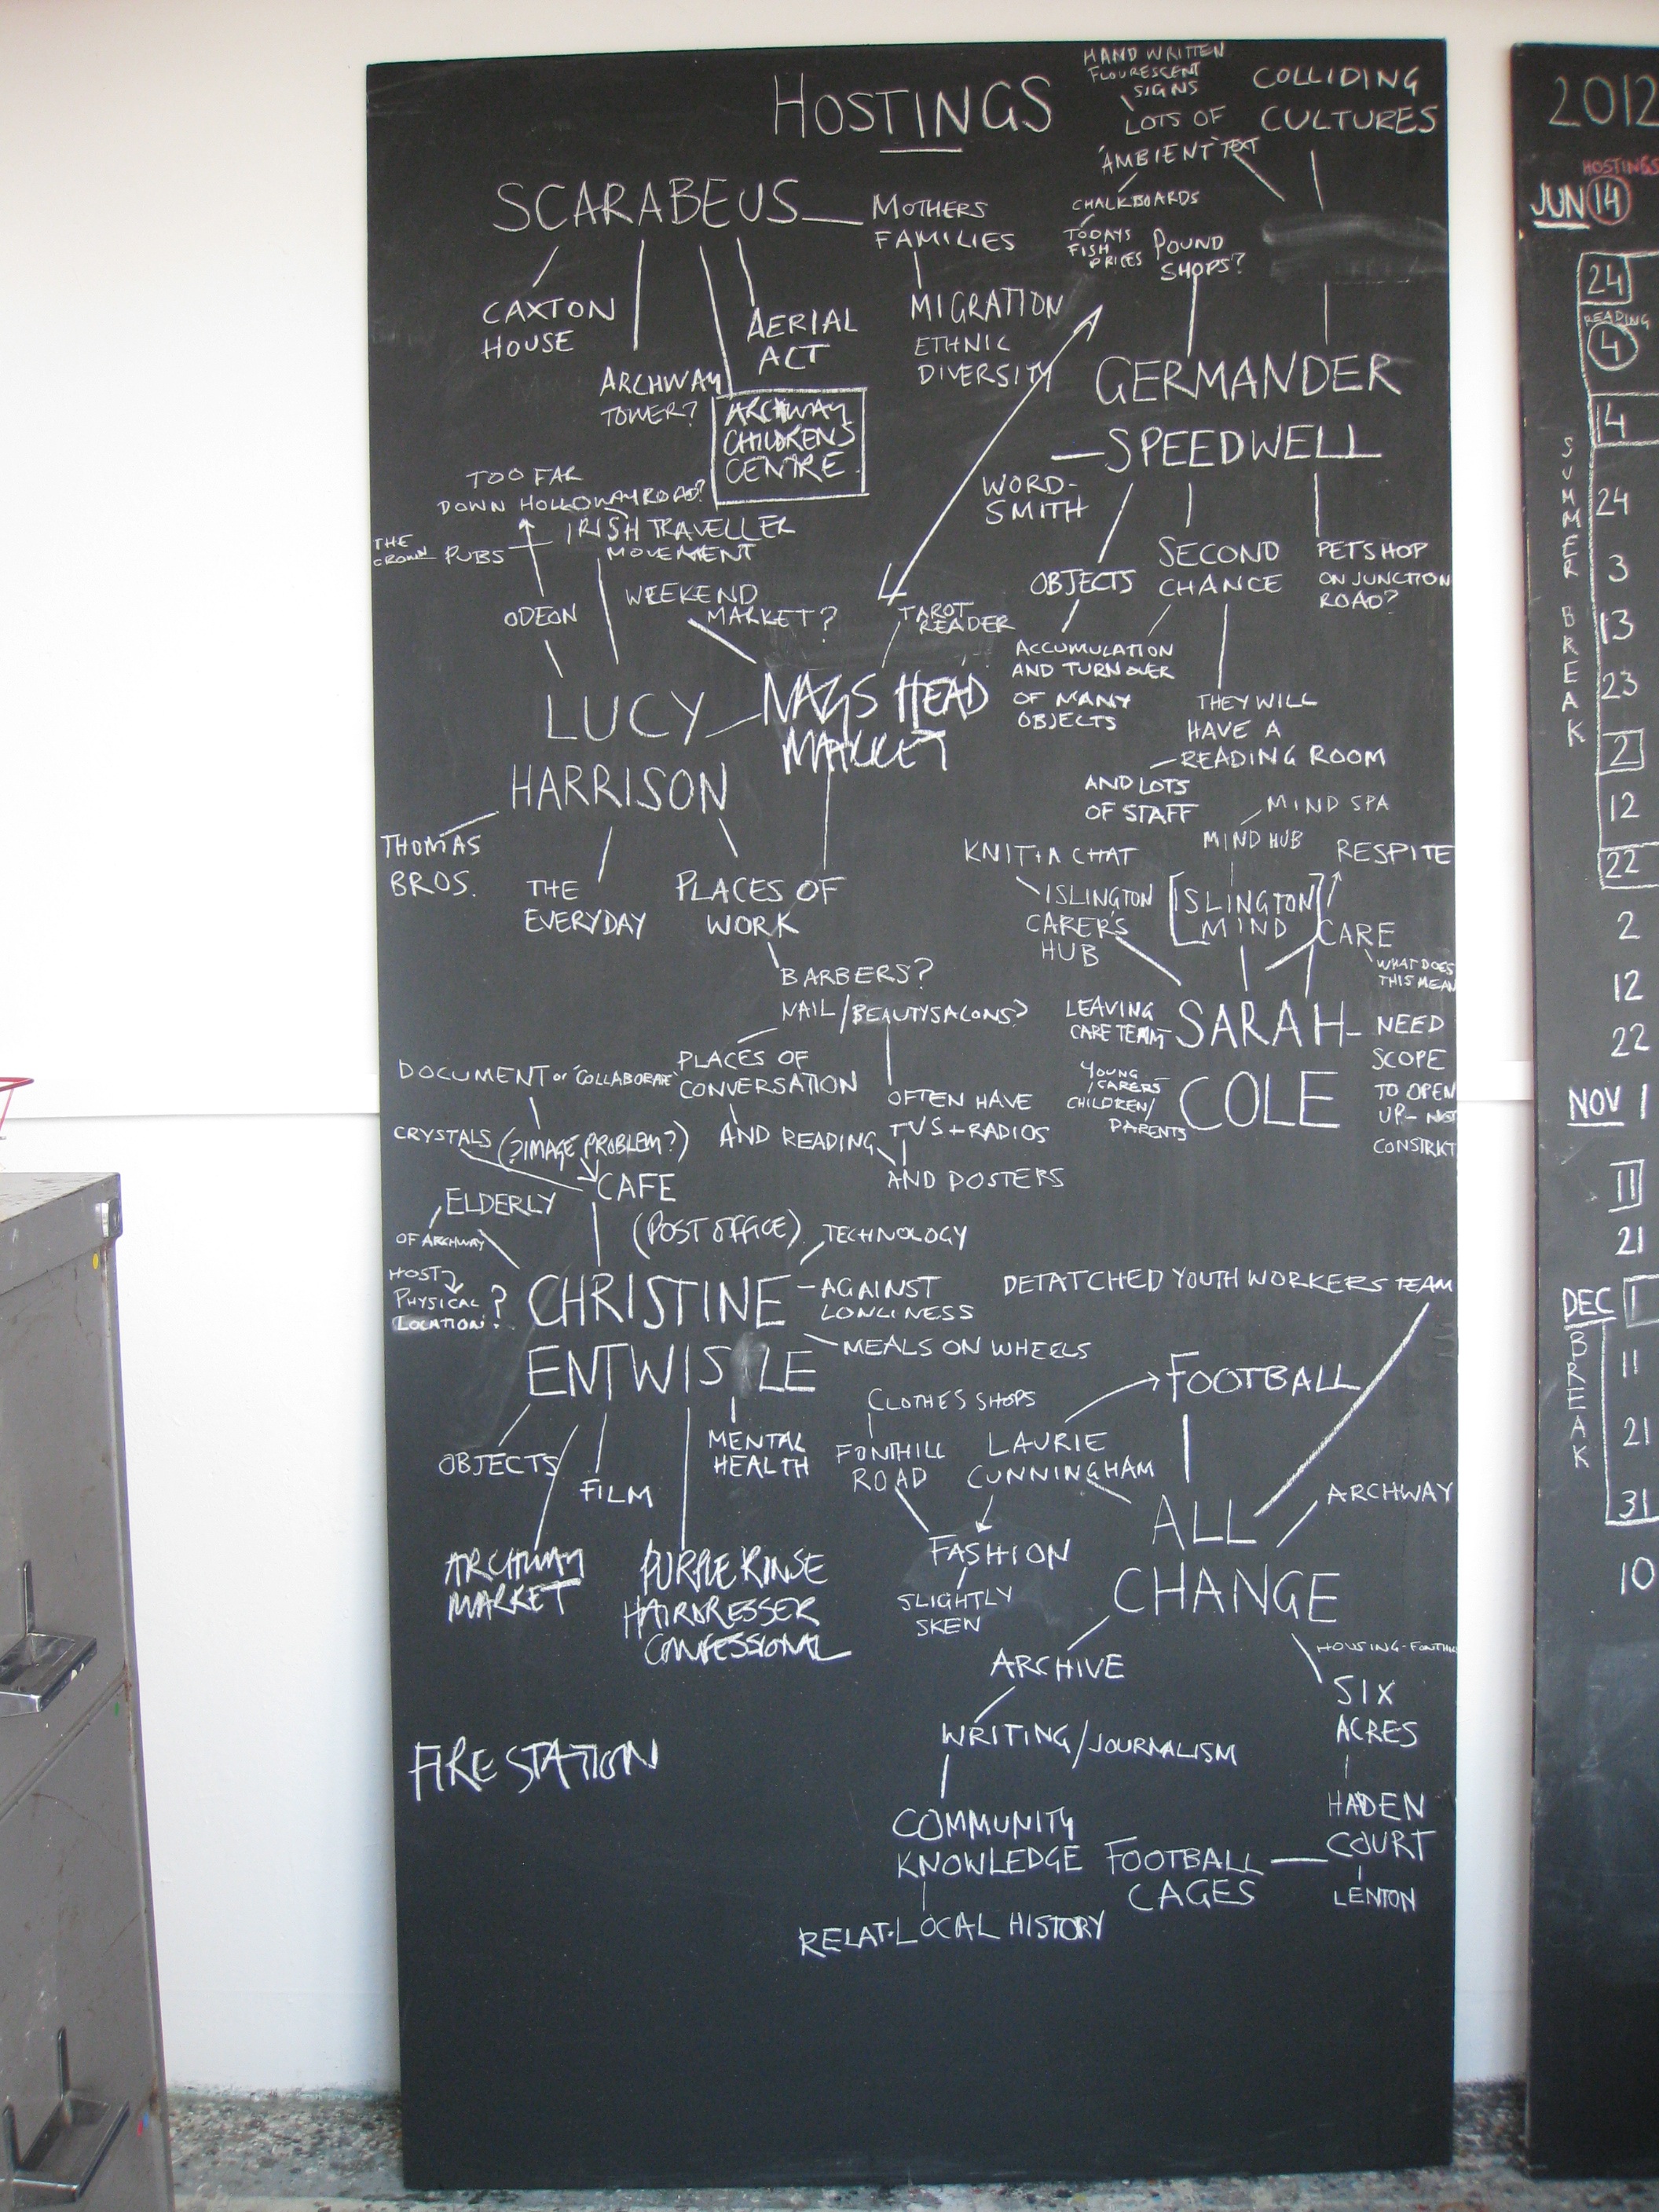 HOSTINGS
HAND WRITTEN
FLOURESCENT
SIGNS
LOTS OF
'AMBIENT' TEXT
COLLIDING
CULTURES
CHALKBOARDS
TODAYS
FISH
PRICES
POUND
SHOPS?
SCARABEUS
MOTHERS
FAMILIES
MIGRATION
ETHNIC
DIVERSITY
CAXTON
HOUSE
ARCHWAY
TOWER?
AERIAL
ACT
ARCHWAY
CHILDRENS
CENTRE
GERMANDER
SPEEDWELL
WORD-
SMITH
OBJECTS
SECOND
CHANCE
PETSHOP
ON JUNCTION
ROAD?
ACCUMULATION
AND TURNOVER
OF MANY
OBJECTS
THEY WILL
HAVE A
READING ROOM
AND LOTS
OF STAFF
TOO FAR
DOWN HOLLOWAY ROAD?
IRISH TRAVELLER
MOVEMENT
THE
CROWN
PUBS
ODEON
WEEKEND
MARKET?
TAROT
READER
NAGS HEAD
MARKET
LUCY
HARRISON
THOMAS
BROS.
THE
EVERYDAY
PLACES OF
WORK
BARBERS?
NAIL/BEAUTY SALONS?
PLACES OF
CONVERSATION
AND READING
OFTEN HAVE
TVS + RADIOS
AND POSTERS
MIND SPA
MIND HUB
KNIT + A CHAT
RESPITE
ISLINGTON
CARER'S
HUB
ISLINGTON
MIND
CARE
WHAT DOES
THIS MEAN
LEAVING
CARE TEAM
SARAH
COLE
YOUNG
CARERS
CHILDREN/
PARENTS
NEED
SCOPE
TO OPEN
UP - NOT
CONSTRICT
DOCUMENT or 'COLLABORATE'
CRYSTALS
(?IMAGE PROBLEM?)
CAFE
ELDERLY
OF ARCHWAY
(POST OFFICE)
TECHNOLOGY
HOST
PHYSICAL
LOCATION?
CHRISTINE
ENTWISTLE
AGAINST
LONLINESS
MEALS ON WHEELS
OBJECTS
FILM
MENTAL
HEALTH
ARCHWAY
MARKET
PURPLE RINSE
HAIRDRESSER
CONFESSIONAL
FIRE STATION
DETATCHED YOUTH WORKERS TEAM
FOOTBALL
CLOTHES SHOPS
FONTHILL
ROAD
LAURIE
CUNNINGHAM
FASHION
SLIGHTLY
SKEN
ALL
CHANGE
ARCHWAY
ARCHIVE
WRITING/JOURNALISM
COMMUNITY
KNOWLEDGE
RELAT. LOCAL HISTORY
SIX
ACRES
HADEN
COURT
LENTON
FOOTBALL
CAGES
2012
HOSTINGS
JUN 14
24
READING
4
14
SUMMER BREAK
24
3
13
23
2
12
22
2
12
22
NOV 1
11
21
DEC 1
BREAK
11
21
31
10